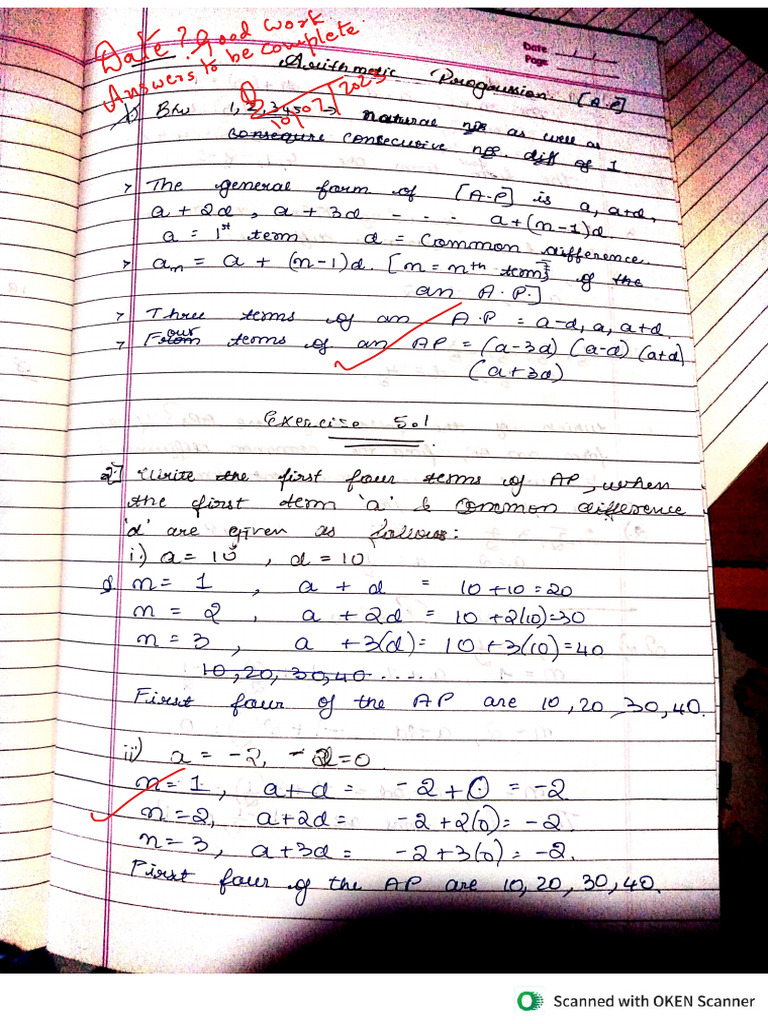 Date? Good work
Answers to be complete.
Date / /
Page
Arithmetic Progression [A.P]
1, 2, 3, 4, 5 0 natural nos as well as
consequre consecutive nos. diff of 1
> The general form of [A.P] is a, a+d,
a + 2d, a + 3d - - - a+(n-1)d
a = 1st term d = Common difference.
> an = a + (n-1)d. [n = nth term] of the
an A.P.]
> Three terms of an A.P = a-d, a, a+d.
> Four terms of an AP = (a-3d) (a-d) (a+d)
(a+3d)
Exercise 5.1
2] Write the first four terms of AP, when
the first term 'a' & common difference
'd' are given as follows:
i) a = 10, d = 10
n = 1, a + d = 10 + 10 = 20
n = 2, a + 2d = 10 + 2(10) = 30
n = 3, a + 3(d) = 10 + 3(10) = 40
10, 20, 30, 40 .....
First four of the AP are 10, 20, 30, 40.
ii) a = -2, d = 0
n = 1, a + d = -2 + 0 = -2
n = 2, a + 2d = -2 + 2(0) = -2
n = 3, a + 3d = -2 + 3(0) = -2.
First four of the AP are 10, 20, 30, 40.
Scanned with OKEN Scanner